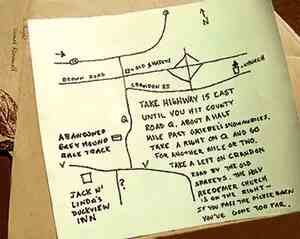 N
OLD SHAKEYS
BROWN ROAD
CHURCH
CRANDON RD
Q
TAKE HIGHWAY 15 EAST
UNTIL YOU HIT COUNTY
ROAD Q. ABOUT A HALF
MILE PAST GRIEBEL'S SNOWMOBILES.
TAKE A RIGHT ON Q AND GO
FOR ANOTHER MILE OR TWO.
TAKE A LEFT ON CRANDON
ROAD BY THE OLD
SHAKEYS. THE HOLY
REDEEMER CHURCH
IS ON THE RIGHT—
IF YOU PASS THE PICKLE BARN
YOU'VE GONE TOO FAR.
ABANDONED
GREYHOUND
RACE TRACK
V
V
JACK N'
LINDA'S
DUCKVIEW
INN
?